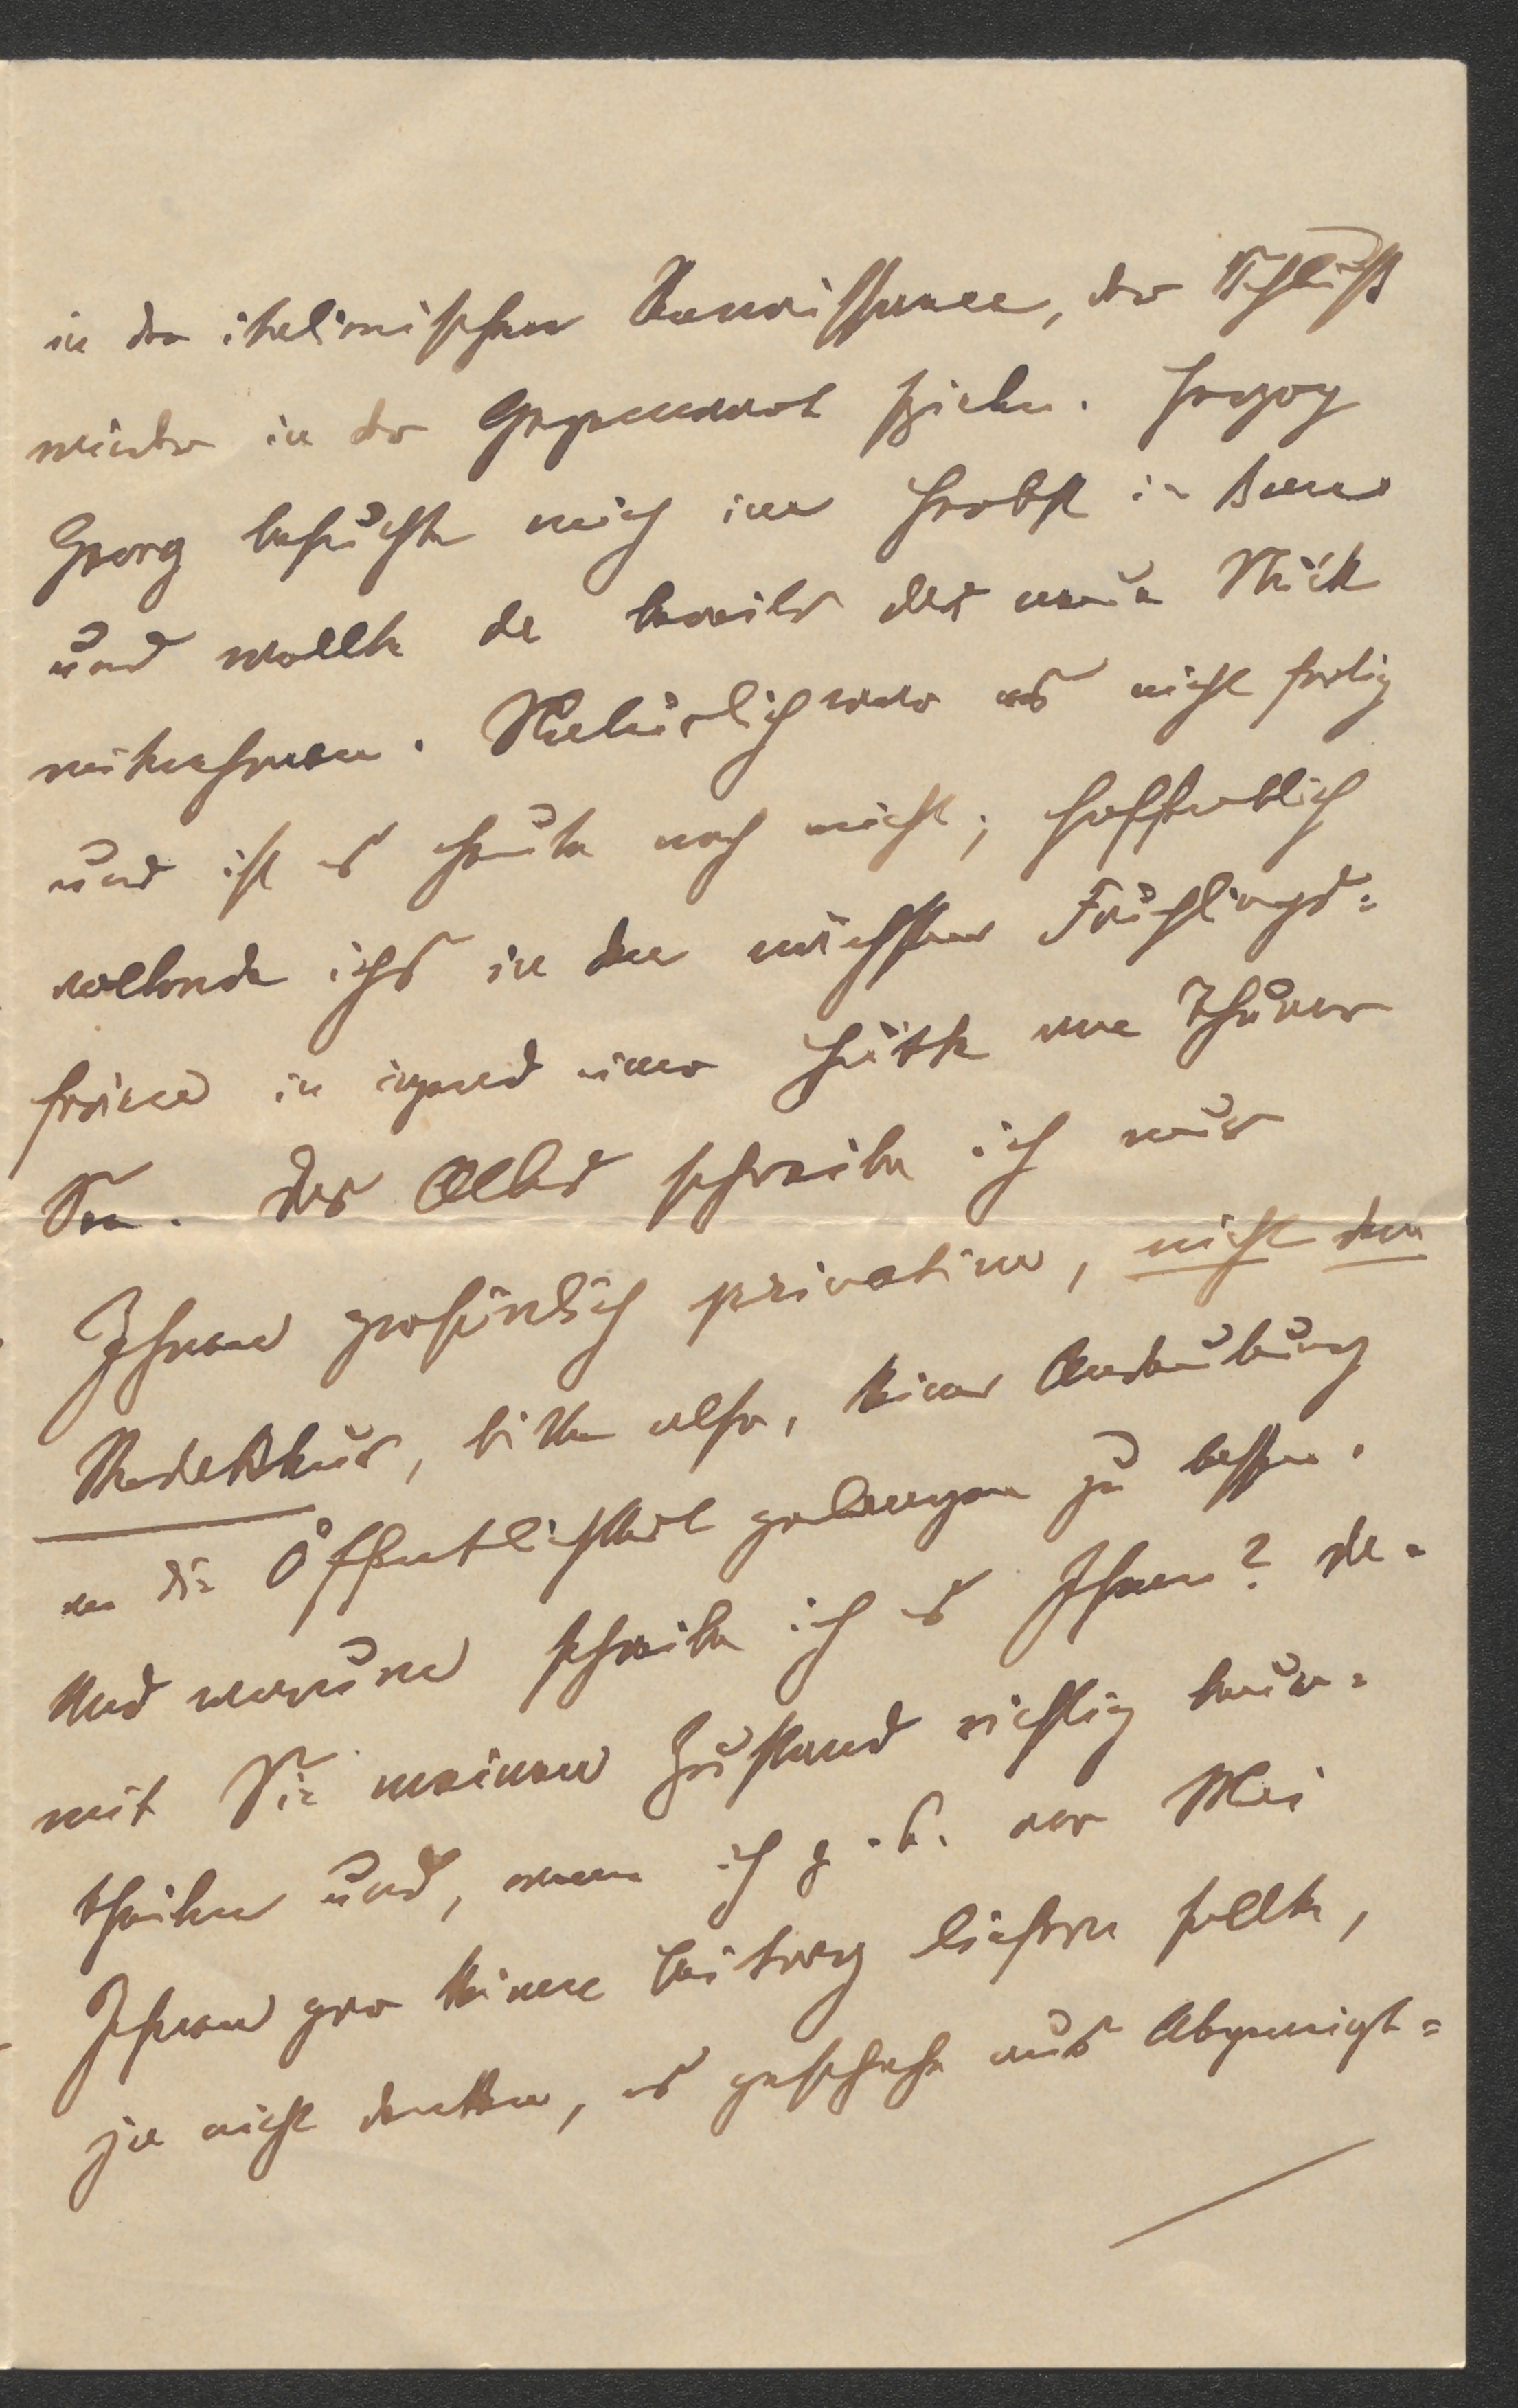 in der italienischen Renaissance, der Schluß
wieder in der Gegenwart spielen. Herzog
Georg besuchte mich im Herbst in Bern
und wollte da bereits das neue Stück
mitnehmen. Natürlich war es nicht fertig
und ist es heute noch nicht; hoffentlich
vollende ichs in den nächsten Frühlings=
ferien in irgend einer Hütte am Thuner
See. Das Alles schreibe ich nur
Ihnen persönlich privatim, nicht dem
Redakteur, bitte also, keine Andeutung
an die Öffentlichkeit gelangen zu lassen.
Und warum schreibe ich es Ihnen? Da=
mit Sie meinen Zustand richtig beur=
theilen und, wenn ich z. B. vor Mai
Ihnen gar keinen Beitrag liefern sollte,
ja nicht denken, es geschehe aus Abgeneigt=